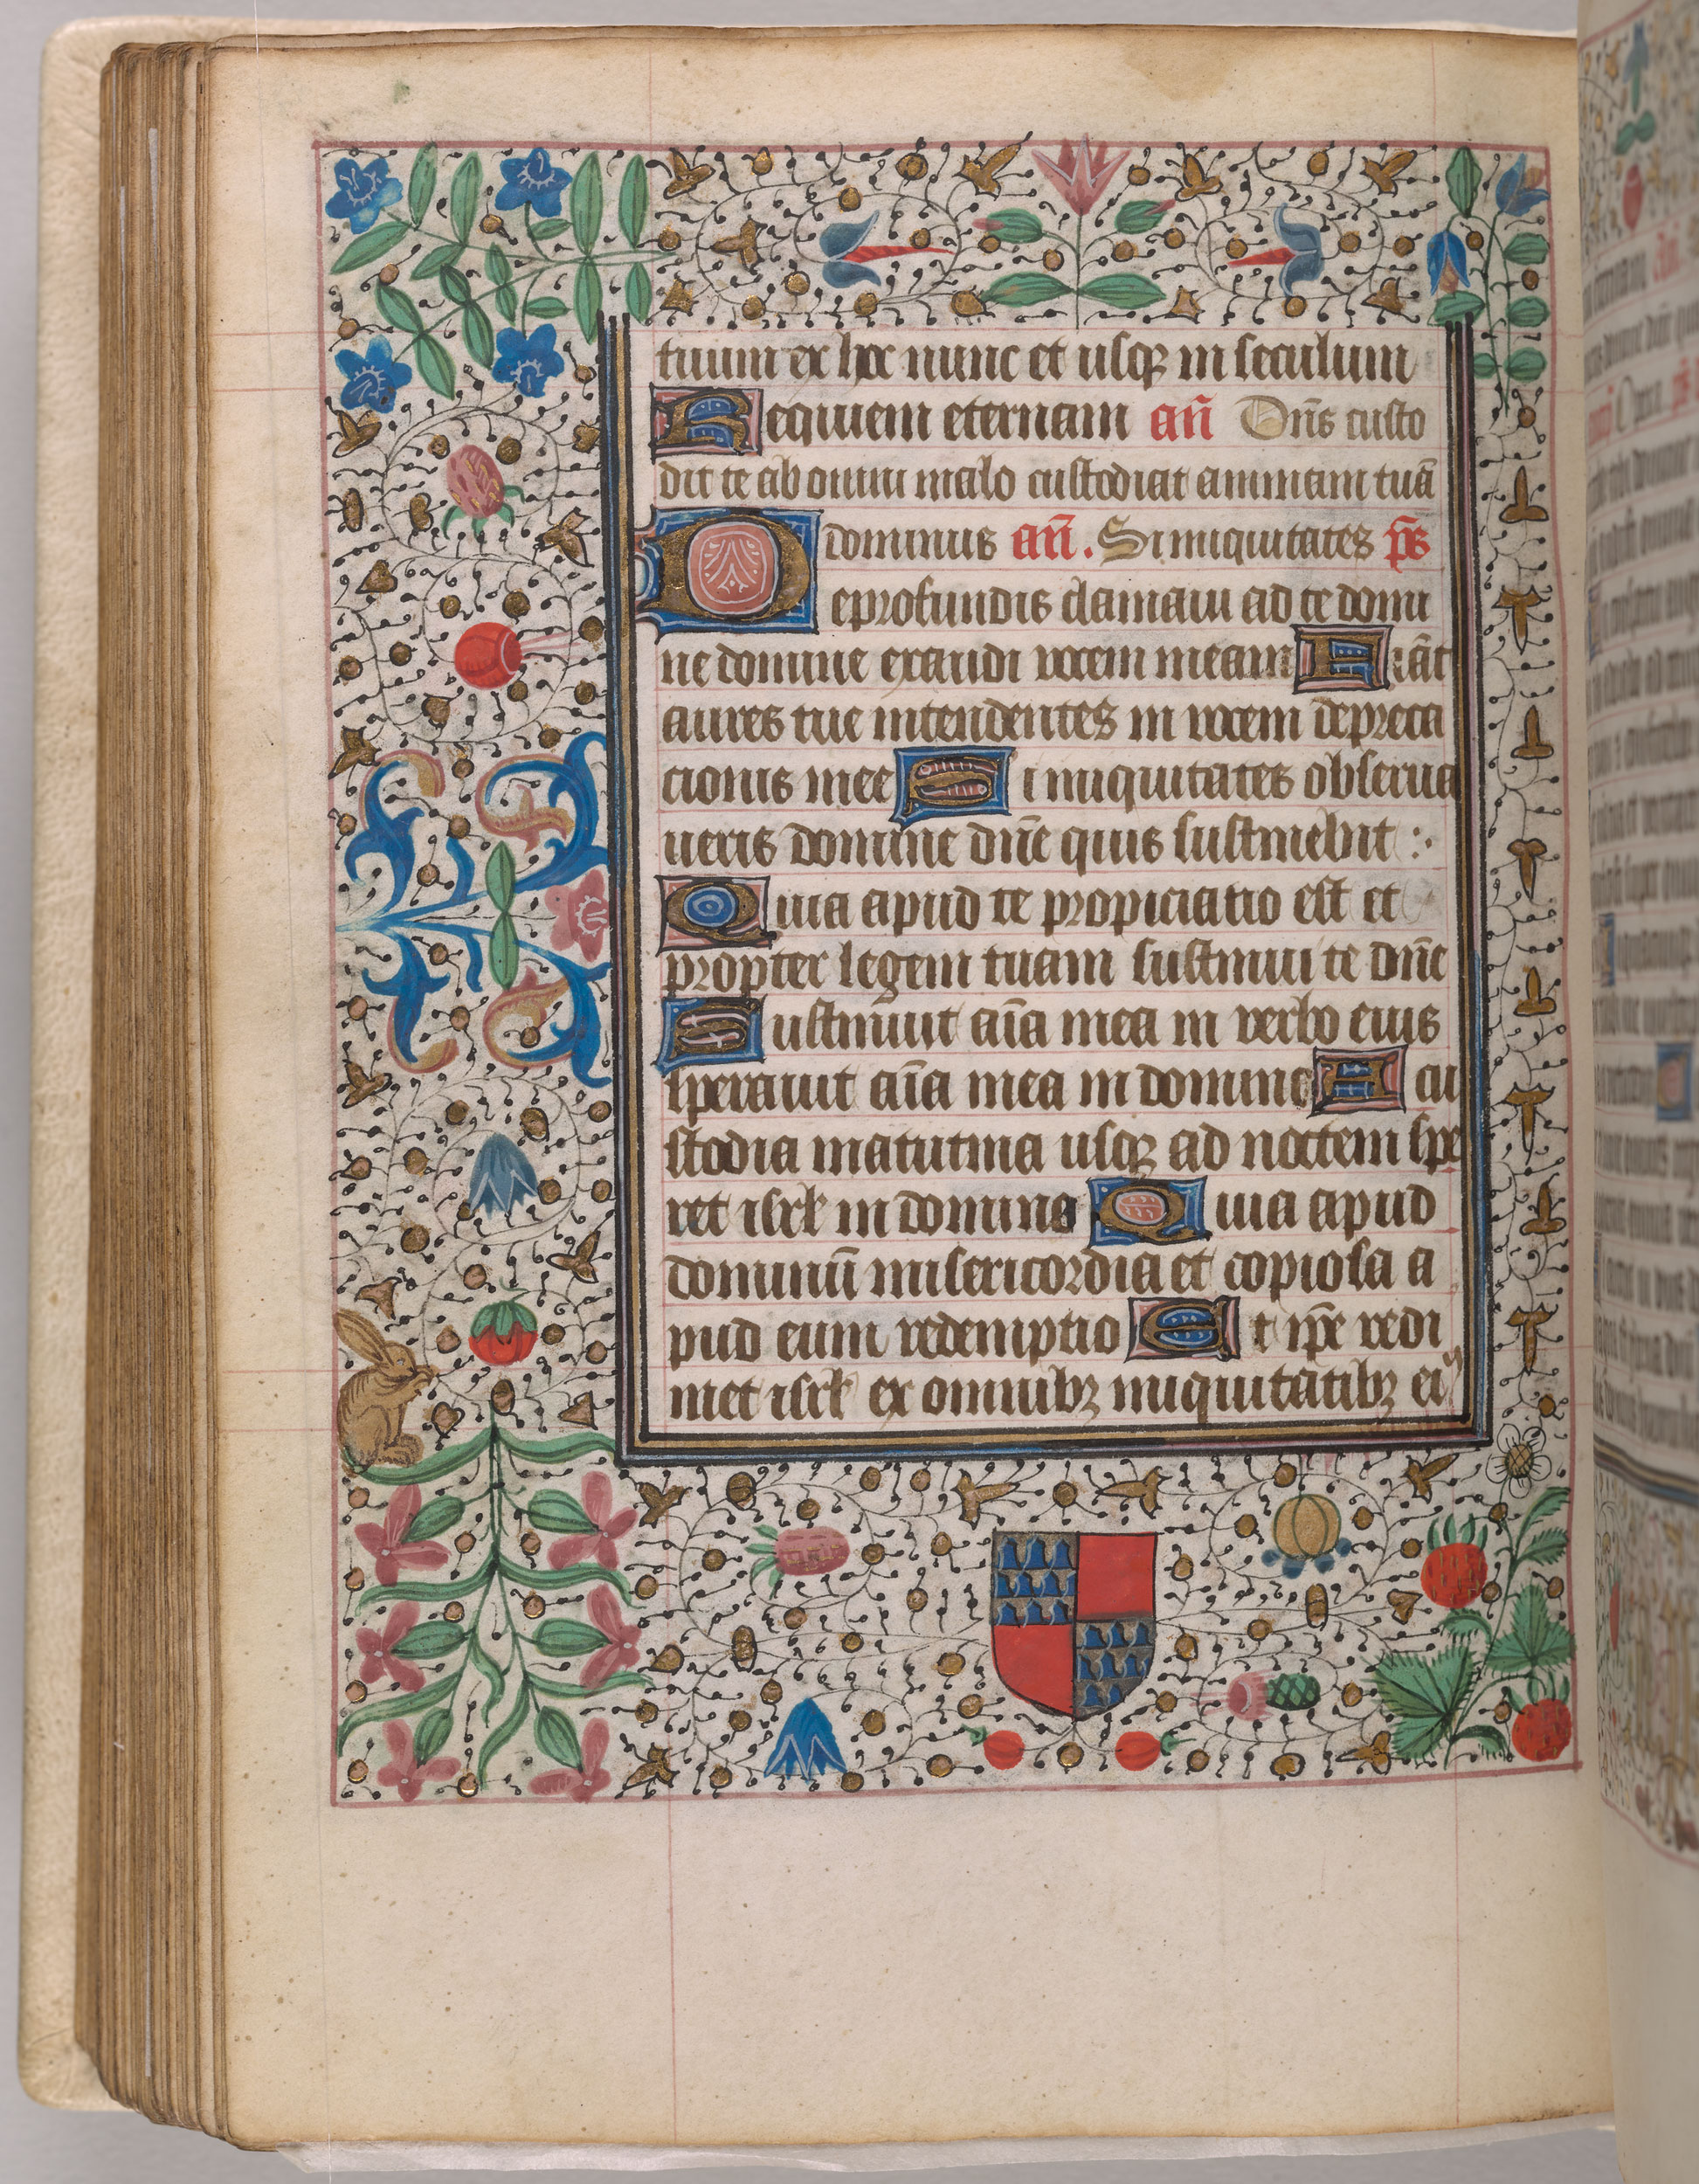 tuum ex hoc nunc et usqꝫ in seculum
Requiem eternam an̄ Dn̄s custo
dit te ab omni malo custodiat animam tuā
dominus an̄. Si iniquitates ps̄
De profundis clamavi ad te domi
ne domine exaudi vocem meam Fiāt
aures tue intendentes in vocem depreca
cionis mee Si iniquitates observa
veris domine dn̄e quis sustinebit :·
Quia apud te propiciatio est et
propter legem tuam sustinui te dn̄e
Sustinuit aīa mea in verbo eius
speravit aīa mea in domino A cu
stodia matutina usqꝫ ad noctem spe
ret isrl in domino Quia apud
dominū misericordia et copiosa a
pud eum redemptio Et ip̄e redi
met isrl ex omnibꝫ iniquitatibꝫ eiꝰ